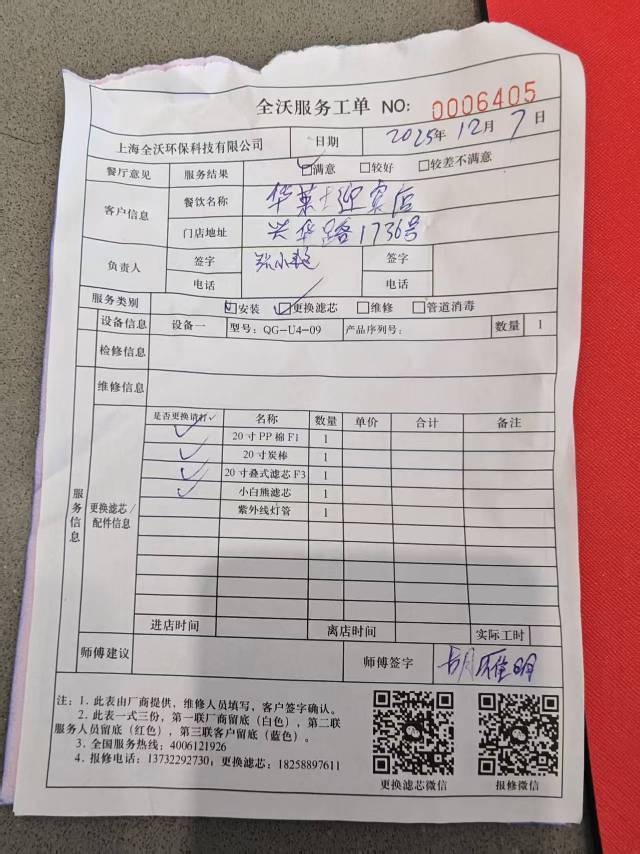 全沃服务工单 NO: 0006405
上海全沃环保科技有限公司 日期 2025年12月7日
餐厅意见 服务结果 ☑满意 □较好 □较差不满意
客户信息 餐饮名称 华莱士迎宾店
门店地址 兴华路1736号
负责人 签字 签字
电话 电话
服务类别 ☑安装 ☑更换滤芯 □维修 □管道消毒
设备信息 设备一 型号: QG-U4-09 产品序列号: 数量 1
检修信息
维修信息
服务信息
更换滤芯/配件信息
是否更换请打√ 名称 数量 单价 合计 备注
✓ 20寸PP棉F1 1
✓ 20寸炭棒 1
✓ 20寸叠式滤芯F3 1
✓ 小白熊滤芯 1
紫外线灯管 1
进店时间 离店时间 实际工时
师傅建议 师傅签字 胡雁明
注: 1. 此表由厂商提供，维修人员填写，客户签字确认。
2. 此表一式三份，第一联厂商留底（白色），第二联
服务人员留底（红色），第三联客户留底（蓝色）。
3. 全国服务热线: 4006121926
4. 报修电话: 13732292730; 更换滤芯: 18258897611
更换滤芯微信 报修微信